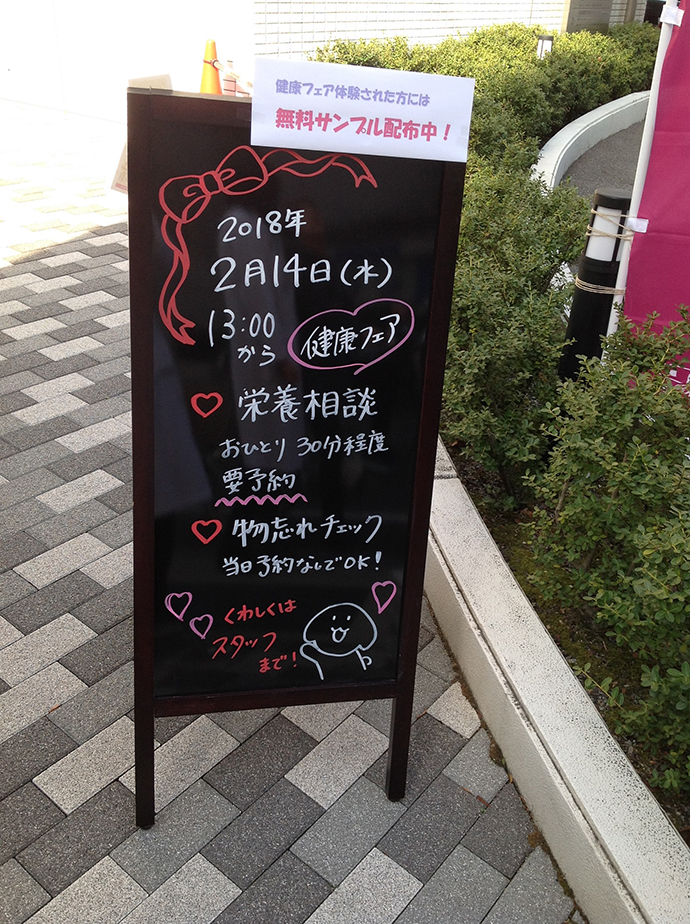 健康フェア体験された方には
無料サンプル配布中！
2018年
2月14日(水)
13:00
から
健康フェア
栄養相談
おひとり 30分程度
要予約
物忘れチェック
当日予約なしでOK!
くわしくは
スタッフ
まで!